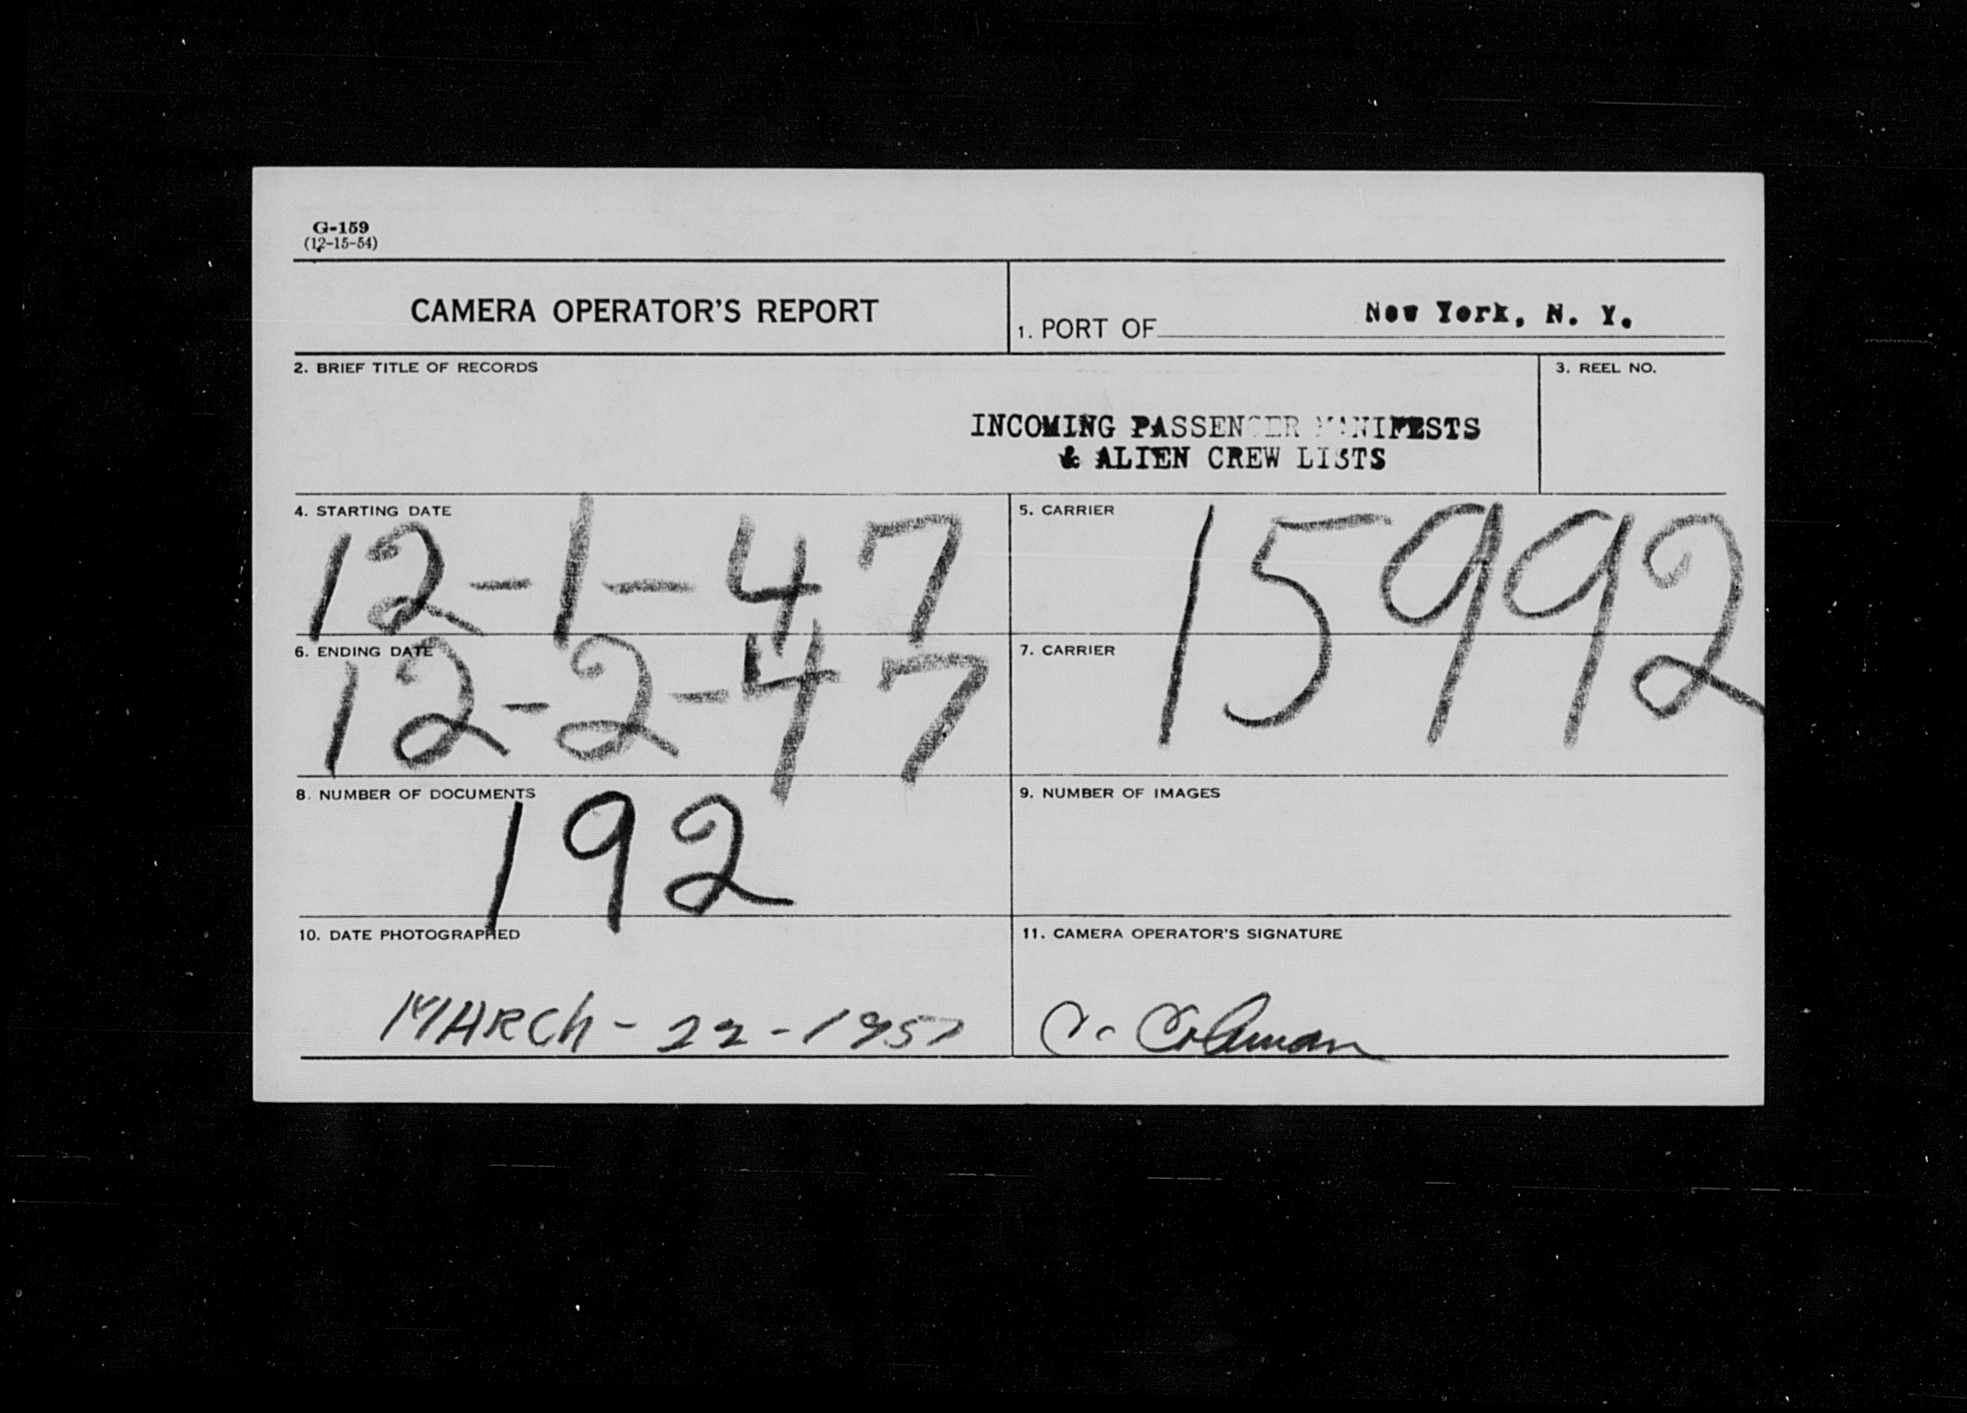 G-159
(12-15-54)
CAMERA OPERATOR'S REPORT
1. PORT OF New York, N. Y.
2. BRIEF TITLE OF RECORDS
3. REEL NO.
INCOMING PASSENGER MANIFESTS
& ALIEN CREW LISTS
4. STARTING DATE
12-1-47
5. CARRIER
15992
6. ENDING DATE
12-2-47
7. CARRIER
8. NUMBER OF DOCUMENTS
192
9. NUMBER OF IMAGES
10. DATE PHOTOGRAPHED
MARCh-22-1957
11. CAMERA OPERATOR'S SIGNATURE